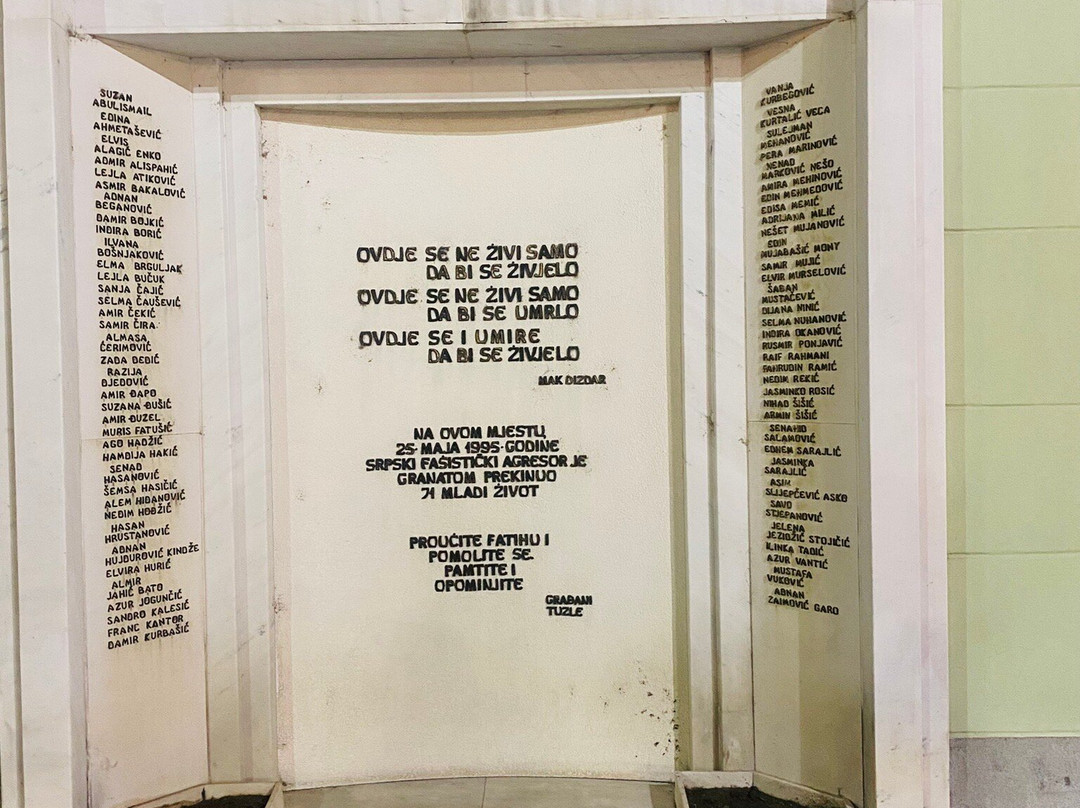 SUZAN
ABULISMAIL
EDINA
AHMETAŠEVIĆ
ELVIS
ALAGIĆ ENKO
ADMIR ALISPAHIĆ
LEJLA ATIKOVIĆ
ASMIR BAKALOVIĆ
ADNAN
BEGANOVIĆ
DAMIR BOJKIĆ
INDIRA BORIĆ
ILVANA
BOŠNJAKOVIĆ
ELMA BRGULJAK
LEJLA BUČUK
SANJA ČAJIĆ
SELMA ČAUŠEVIĆ
AMIR ČEKIĆ
SAMIR ČIRA
ALMASA
ĆERIMOVIĆ
ZADA DEDIĆ
RAZIJA
DJEDOVIĆ
AMIR ĐAPO
SUZANA ĐUŠIĆ
AMIR ĐUZEL
MURIS FATUŠIĆ
AGO HADŽIĆ
HAMDIJA HAKIĆ
SENAD
HASANOVIĆ
ŠEMSA HASIČIĆ
ALEM HIDANOVIĆ
NEDIM HODŽIĆ
HASAN
HRUSTANOVIĆ
ADNAN
HUJDUROVIĆ KINDŽE
ELVIRA HURIĆ
ALMIR
JAHIĆ BATO
AZUR JOGUNČIĆ
SANDRO KALESIĆ
FRANC KANTOR
DAMIR KURBAŠIĆ
OVDJE SE NE ŽIVI SAMO
DA BI SE ŽIVJELO
OVDJE SE NE ŽIVI SAMO
DA BI SE UMRLO
OVDJE SE I UMIRE
DA BI SE ŽIVJELO
MAK DIZDAR
NA OVOM MJESTU,
25·MAJA 1995·GODINE
SRPSKI FAŠISTIČKI AGRESOR JE
GRANATOM PREKINUO
71 MLADI ŽIVOT
PROUČITE FATIHU I
POMOLITE SE.
PAMTITE I
OPOMINJITE
GRAĐANI
TUZLE
VANJA
KURBEGOVIĆ
VESNA
KURTALIĆ VECA
SULEJMAN
MEHANOVIĆ
PERA MARINOVIĆ
NENAD
MARKOVIĆ NEŠO
AMIRA MEHINOVIĆ
EDIN MEHMEDOVIĆ
EDISA MEMIĆ
ADRIJANA MILIĆ
NEŠET MUJANOVIĆ
EDIN
MUJABAŠIĆ MONY
SAMIR MUJIĆ
ELVIR MURSELOVIĆ
ŠABAN
MUSTAČEVIĆ
DIJANA NINIĆ
SELMA NUHANOVIĆ
INDIRA OKANOVIĆ
RUSMIR PONJAVIĆ
RAIF RAHMANI
FAHRUDIN RAMIĆ
NEDIM REKIĆ
JASMINKO ROSIĆ
NIHAD ŠIŠIĆ
ARMIN ŠIŠIĆ
SENAHID
SALAMOVIĆ
EDHEM SARAJLIĆ
JASMINKA
SARAJLIĆ
ASIM
SLIJEPČEVIĆ ASKO
SAVO
STJEPANOVIĆ
JELENA
JEZIDŽIĆ STOJIČIĆ
ILINKA TADIĆ
AZUR VANTIĆ
MUSTAFA
VUKOVIĆ
ADNAN
ZAIMOVIĆ GARO